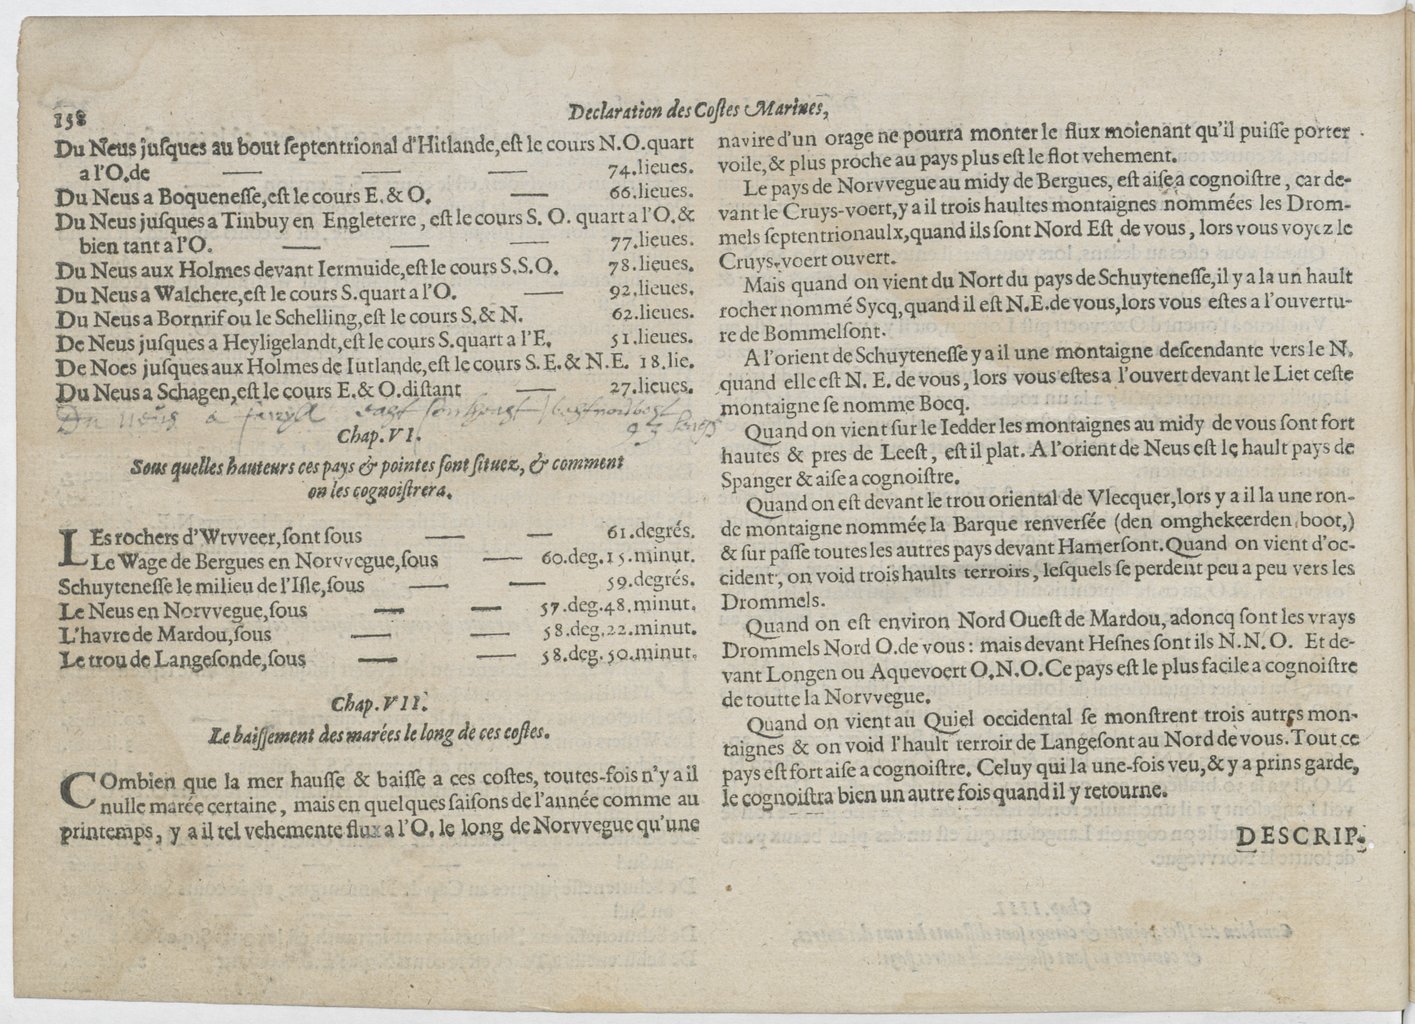 158
Declaration des Costes Marines,
Du Neus jusques au bout septentrional d'Hitlande,est le cours N.O.quart
a l'O.de — — — 74.lieues.
Du Neus a Boquenesse,est le cours E. & O. — 66.lieues.
Du Neus jusques a Tinbuy en Engleterre, est le cours S. O. quart a l'O.&
bien tant a l'O. — — — 77.lieues.
Du Neus aux Holmes devant Iermuide,est le cours S.S.O. 78.lieues.
Du Neus a Walchere,est le cours S.quart a l'O. — 92.lieues.
Du Neus a Bornrif ou le Schelling,est le cours S.& N. 62.lieues.
De Neus jusques a Heyligelandt,est le cours S.quart a l'E. 51.lieues.
De Noes jusques aux Holmes de Iutlande,est le cours S.E.& N.E. 18.lie.
Du Neus a Schagen,est le cours E.& O.distant — 27.lieues.
Du neus a
Chap.VI.
Sous quelles hauteurs ces pays & pointes sont situez, & comment
on les cognoistrera.
LEs rochers d'Wtvveer,sont sous — — 61.degrés.
Le Wage de Bergues en Norvvegue,sous — 60.deg.15.minut.
Schuytenesse le milieu de l'Isle,sous — — 59.degrés.
Le Neus en Norvvegue,sous — — 57.deg.48.minut.
L'havre de Mardou,sous — — 58.deg.22.minut.
Le trou de Langesonde,sous — — 58.deg.50.minut.
Chap.VII.
Le baissement des marées le long de ces costes.
COmbien que la mer hausse & baisse a ces costes, toutes-fois n'y a il
nulle marée certaine, mais en quelques saisons de l'année comme au
printemps, y a il tel vehemente flux a l'O. le long de Norvvegue qu'une
navire d'un orage ne pourra monter le flux moienant qu'il puisse porter
voile,& plus proche au pays plus est le flot vehement.
Le pays de Norvvegue au midy de Bergues, est aise a cognoistre, car de-
vant le Cruys-voert,y a il trois haultes montaignes nommées les Drom-
mels septentrionaulx,quand ils sont Nord Est de vous, lors vous voyez le
Cruys-voert ouvert.
Mais quand on vient du Nort du pays de Schuytenesse,il y a la un hault
rocher nommé Sycq,quand il est N.E.de vous,lors vous estes a l'ouvertu-
re de Bommelsont.
A l'orient de Schuytenesse y a il une montaigne descendante vers le N.
quand elle est N. E. de vous, lors vous estes a l'ouvert devant le Liet ceste
montaigne se nomme Bocq.
Quand on vient sur le Iedder les montaignes au midy de vous sont fort
hautes & pres de Leest, est il plat. A l'orient de Neus est le hault pays de
Spanger & aise a cognoistre.
Quand on est devant le trou oriental de Vlecquer,lors y a il la une ron-
de montaigne nommée la Barque renversée (den omghekeerden boot,)
& sur passe toutes les autres pays devant Hamersont.Quand on vient d'oc-
cident, on void trois haults terroirs, lesquels se perdent peu a peu vers les
Drommels.
Quand on est environ Nord Ouest de Mardou, adoncq sont les vrays
Drommels Nord O.de vous: mais devant Hesnes sont ils N.N.O. Et de-
vant Longen ou Aquevoert O.N.O.Ce pays est le plus facile a cognoistre
de toutte la Norvvegue.
Quand on vient au Quiel occidental se monstrent trois autres mon-
taignes & on void l'hault terroir de Langesont au Nord de vous.Tout ce
pays est fort aise a cognoistre. Celuy qui la une-fois veu,& y a prins garde,
le cognoistra bien un autre fois quand il y retourne.
DESCRIP-